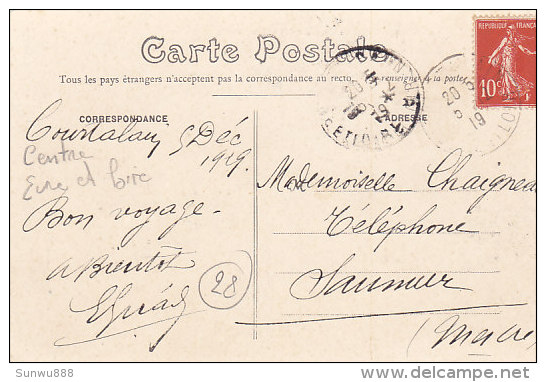 Carte Postale
Tous les pays étrangers n'acceptent pas la correspondance au recto, se renseigner à la poste
CORRESPONDANCE
ADRESSE
REPUBLIQUE FRANÇAISE
10c
20
5
19
Courtalain 5 Déc
1919
Centre
Eure et Loire
Bon voyage
A Bientôt
28
Mademoiselle Chaigneau
Téléphone
Saumur
Sunwu888
delcampe.net